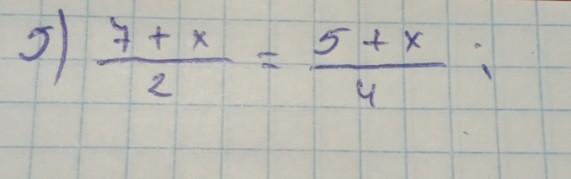 5) (7 + x)/2 = (5 + x)/4 ;